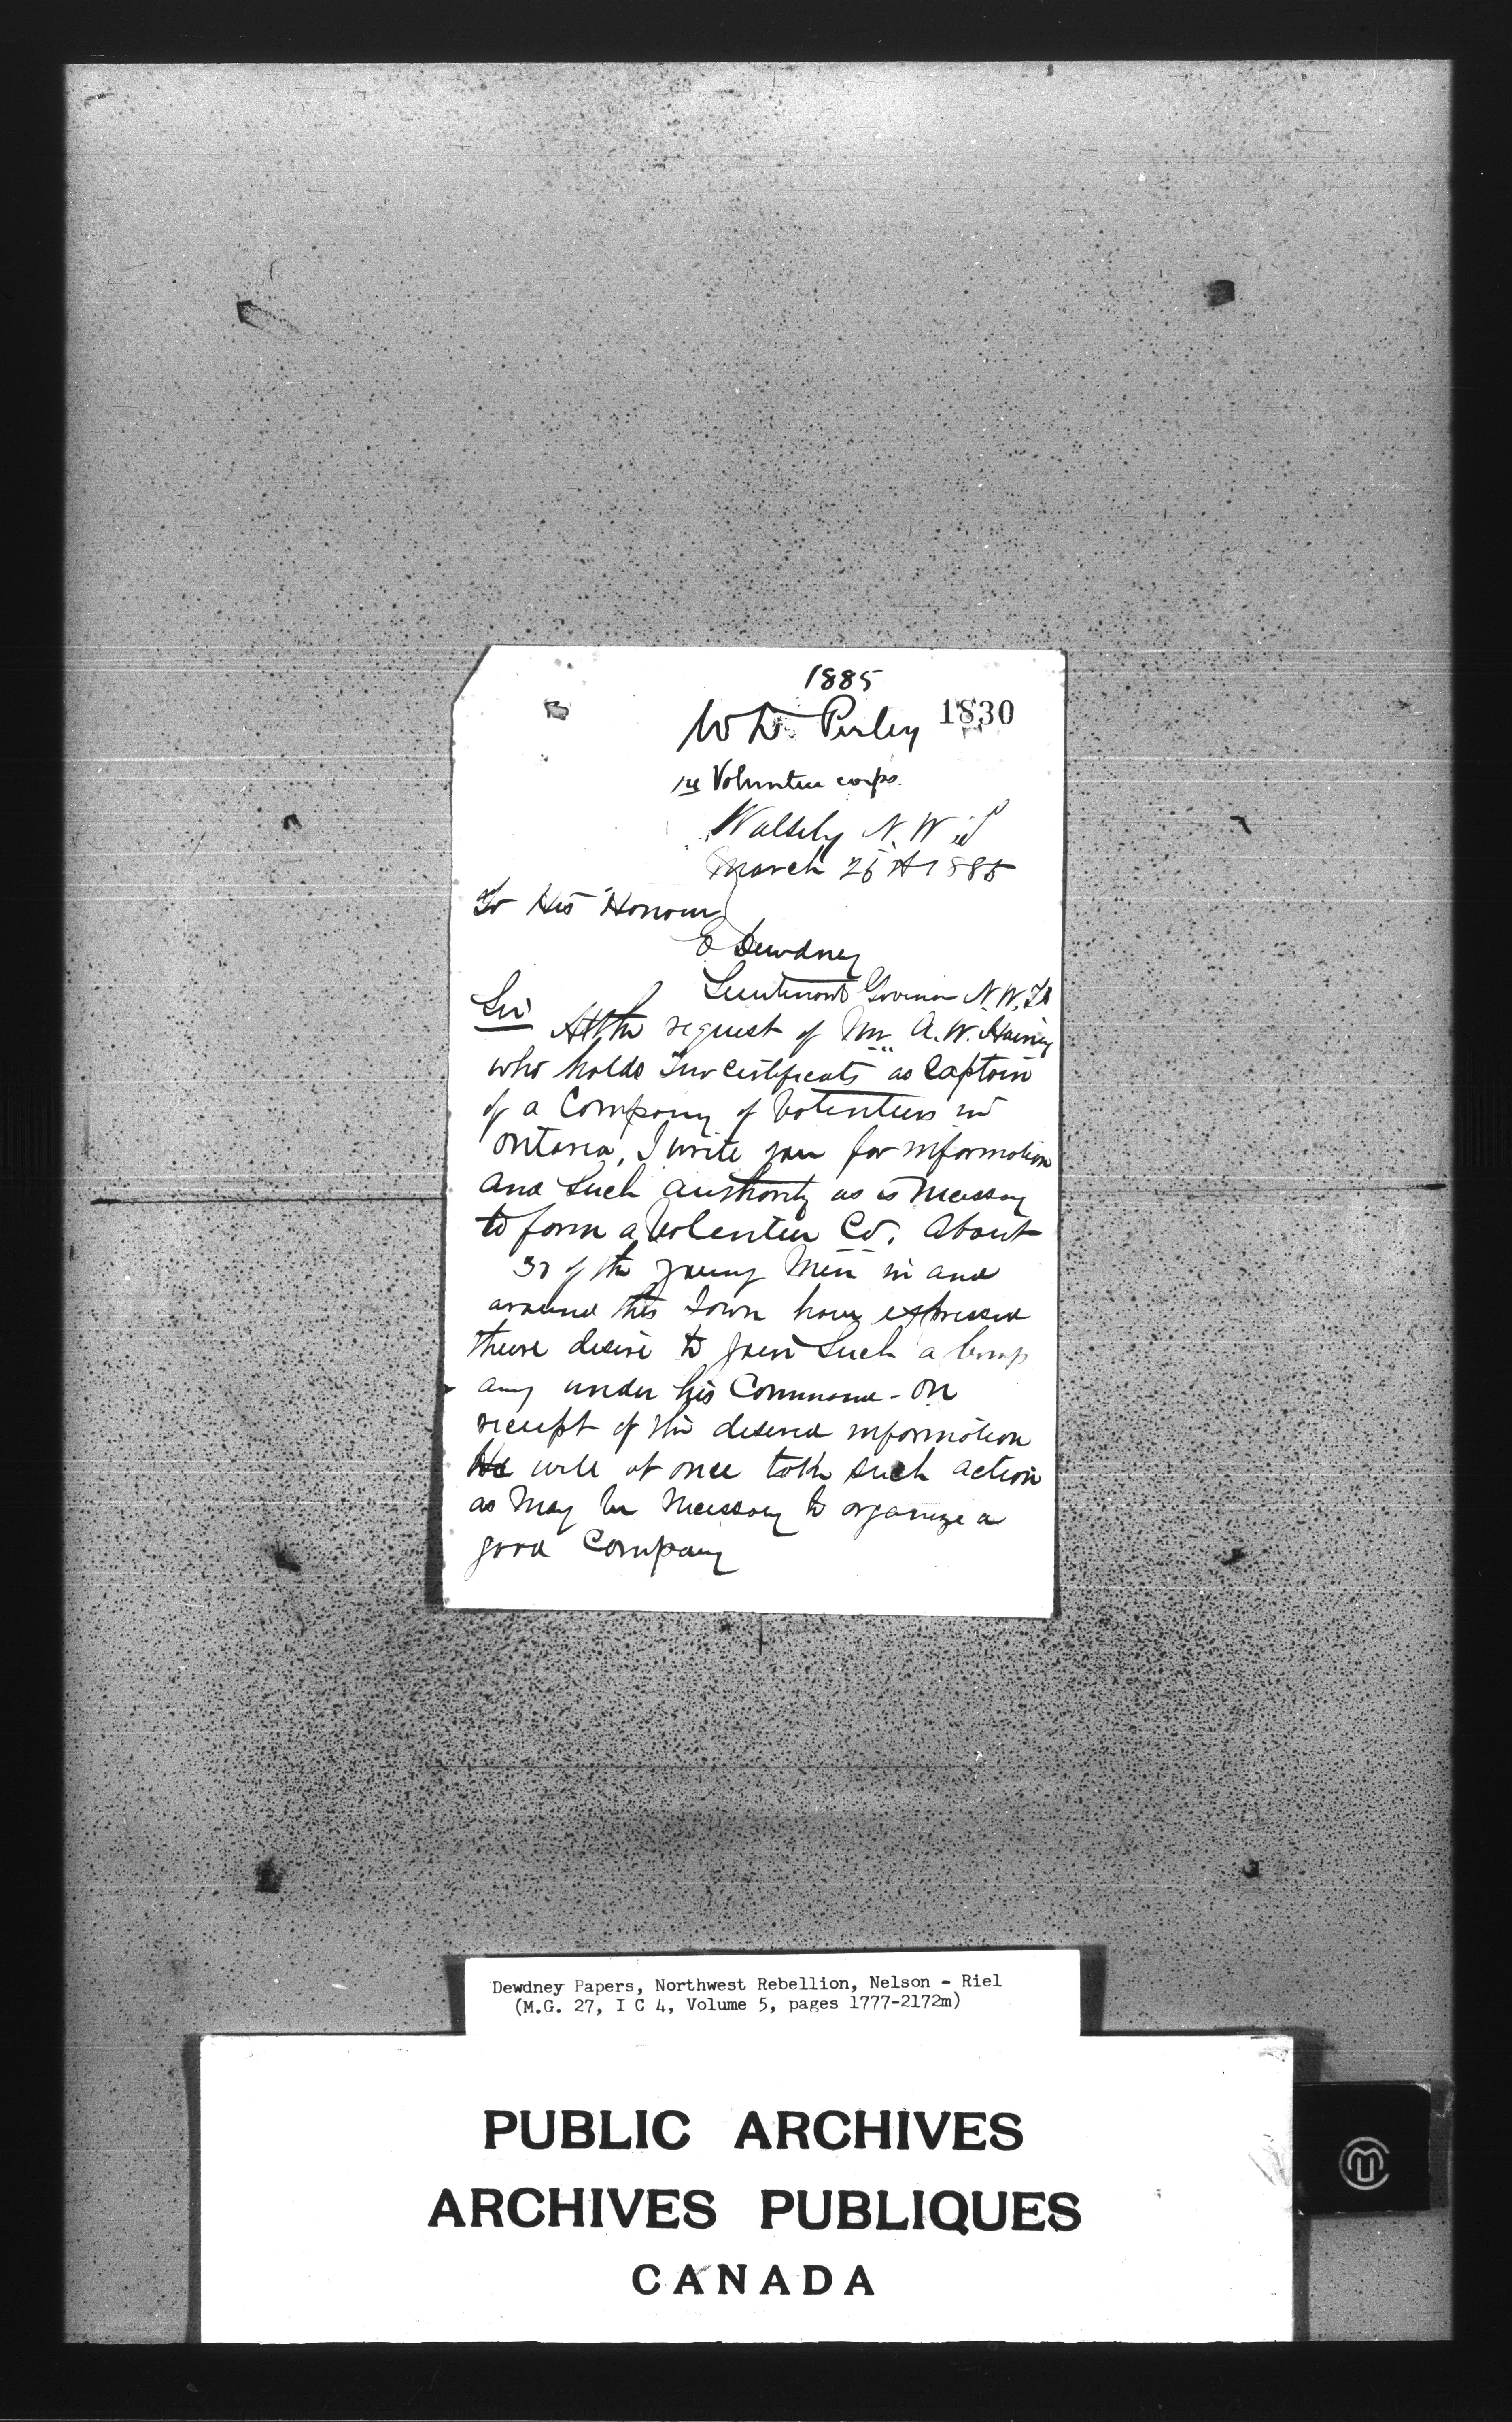 1885
W D Perley 1830
re Volunteer corps.
Wolseley N. W.
March 25th 1885
To His Honour
E Dewdney
Lieutenant Govenor N.W.T.
Sir At the request of Mr. A.W.
who holds two certificates as Captain
of a Company of Volenteers in
Ontario, I write you for information
and Such authority as is necessary
to form a Volenteer Co. About
30 of the young Men in and
around this Town have expressed
there desire to join Such a Comp
any under his Command - On
receipt of the desired information
He will at once take such action
as May be Necessary to organize a
good Company
Dewdney Papers, Northwest Rebellion, Nelson - Riel
(M.G. 27, I C 4, Volume 5, pages 1777-2172m)
PUBLIC ARCHIVES
ARCHIVES PUBLIQUES
CANADA